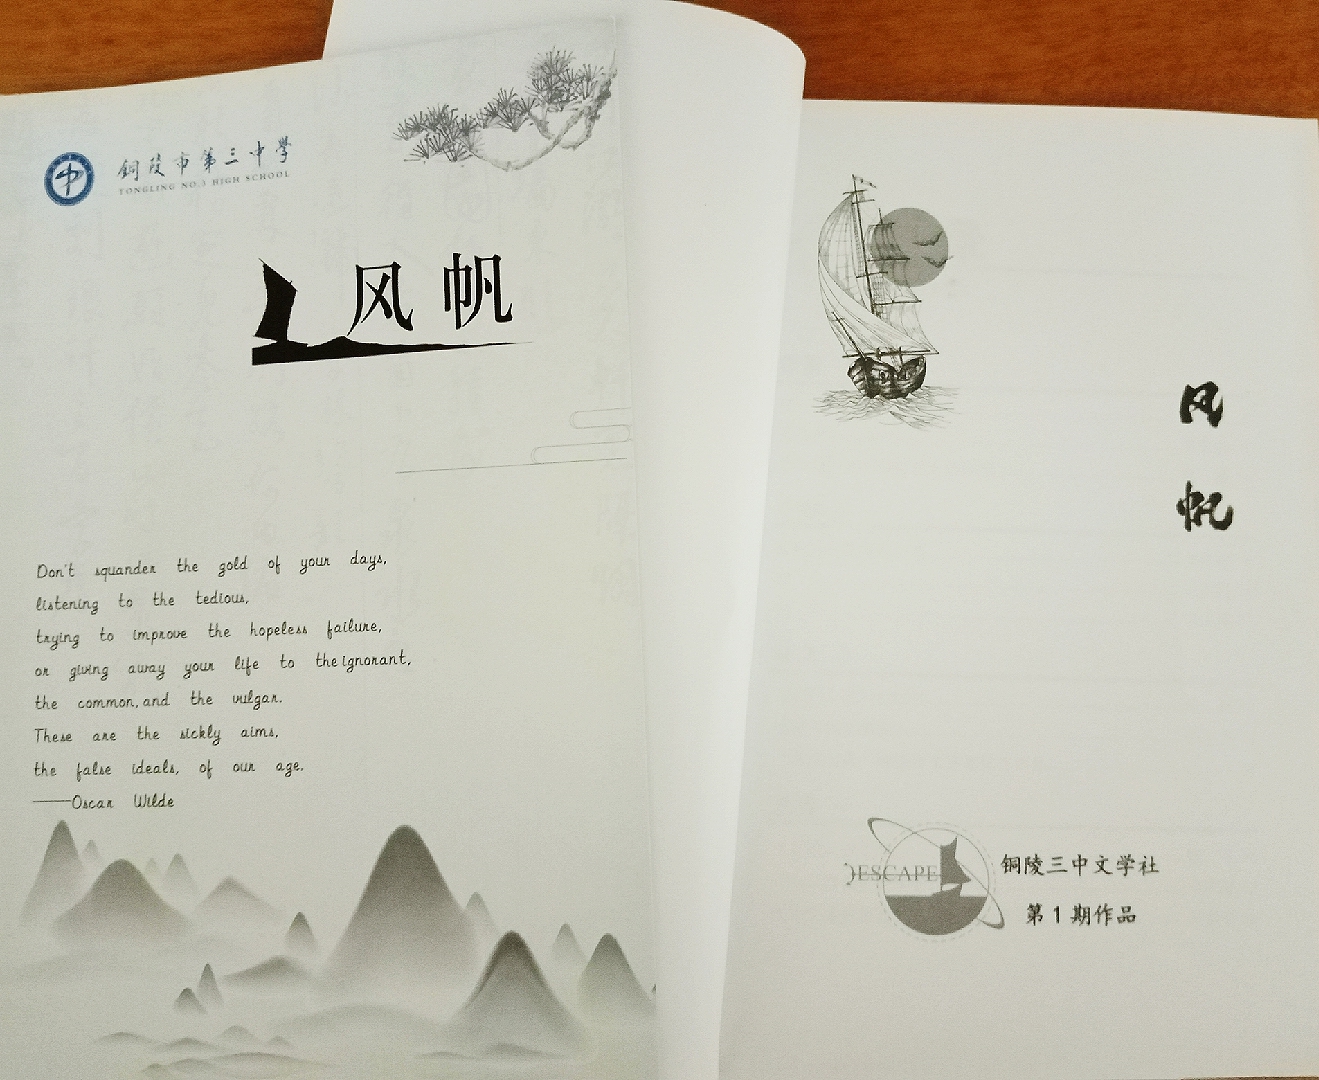 铜陵市第三中学
TONGLING NO.3 HIGH SCHOOL
风帆
Don't squander the gold of your days,
listening to the tedious,
trying to improve the hopeless failure,
or giving away your life to the ignorant,
the common, and the vulgar.
These are the sickly aims,
the false ideals, of our age.
——Oscar Wilde
风
帆
ESCAPE
铜陵三中文学社
第1期作品